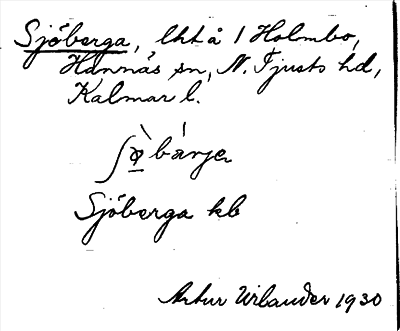 Sjöberga, lht å 1 Holmbo,
Hannäs sn, N. Tjusts hd,
Kalmar l.
ʃø̠̀ bárja
Sjöberga kb
Artur Urlander 1930